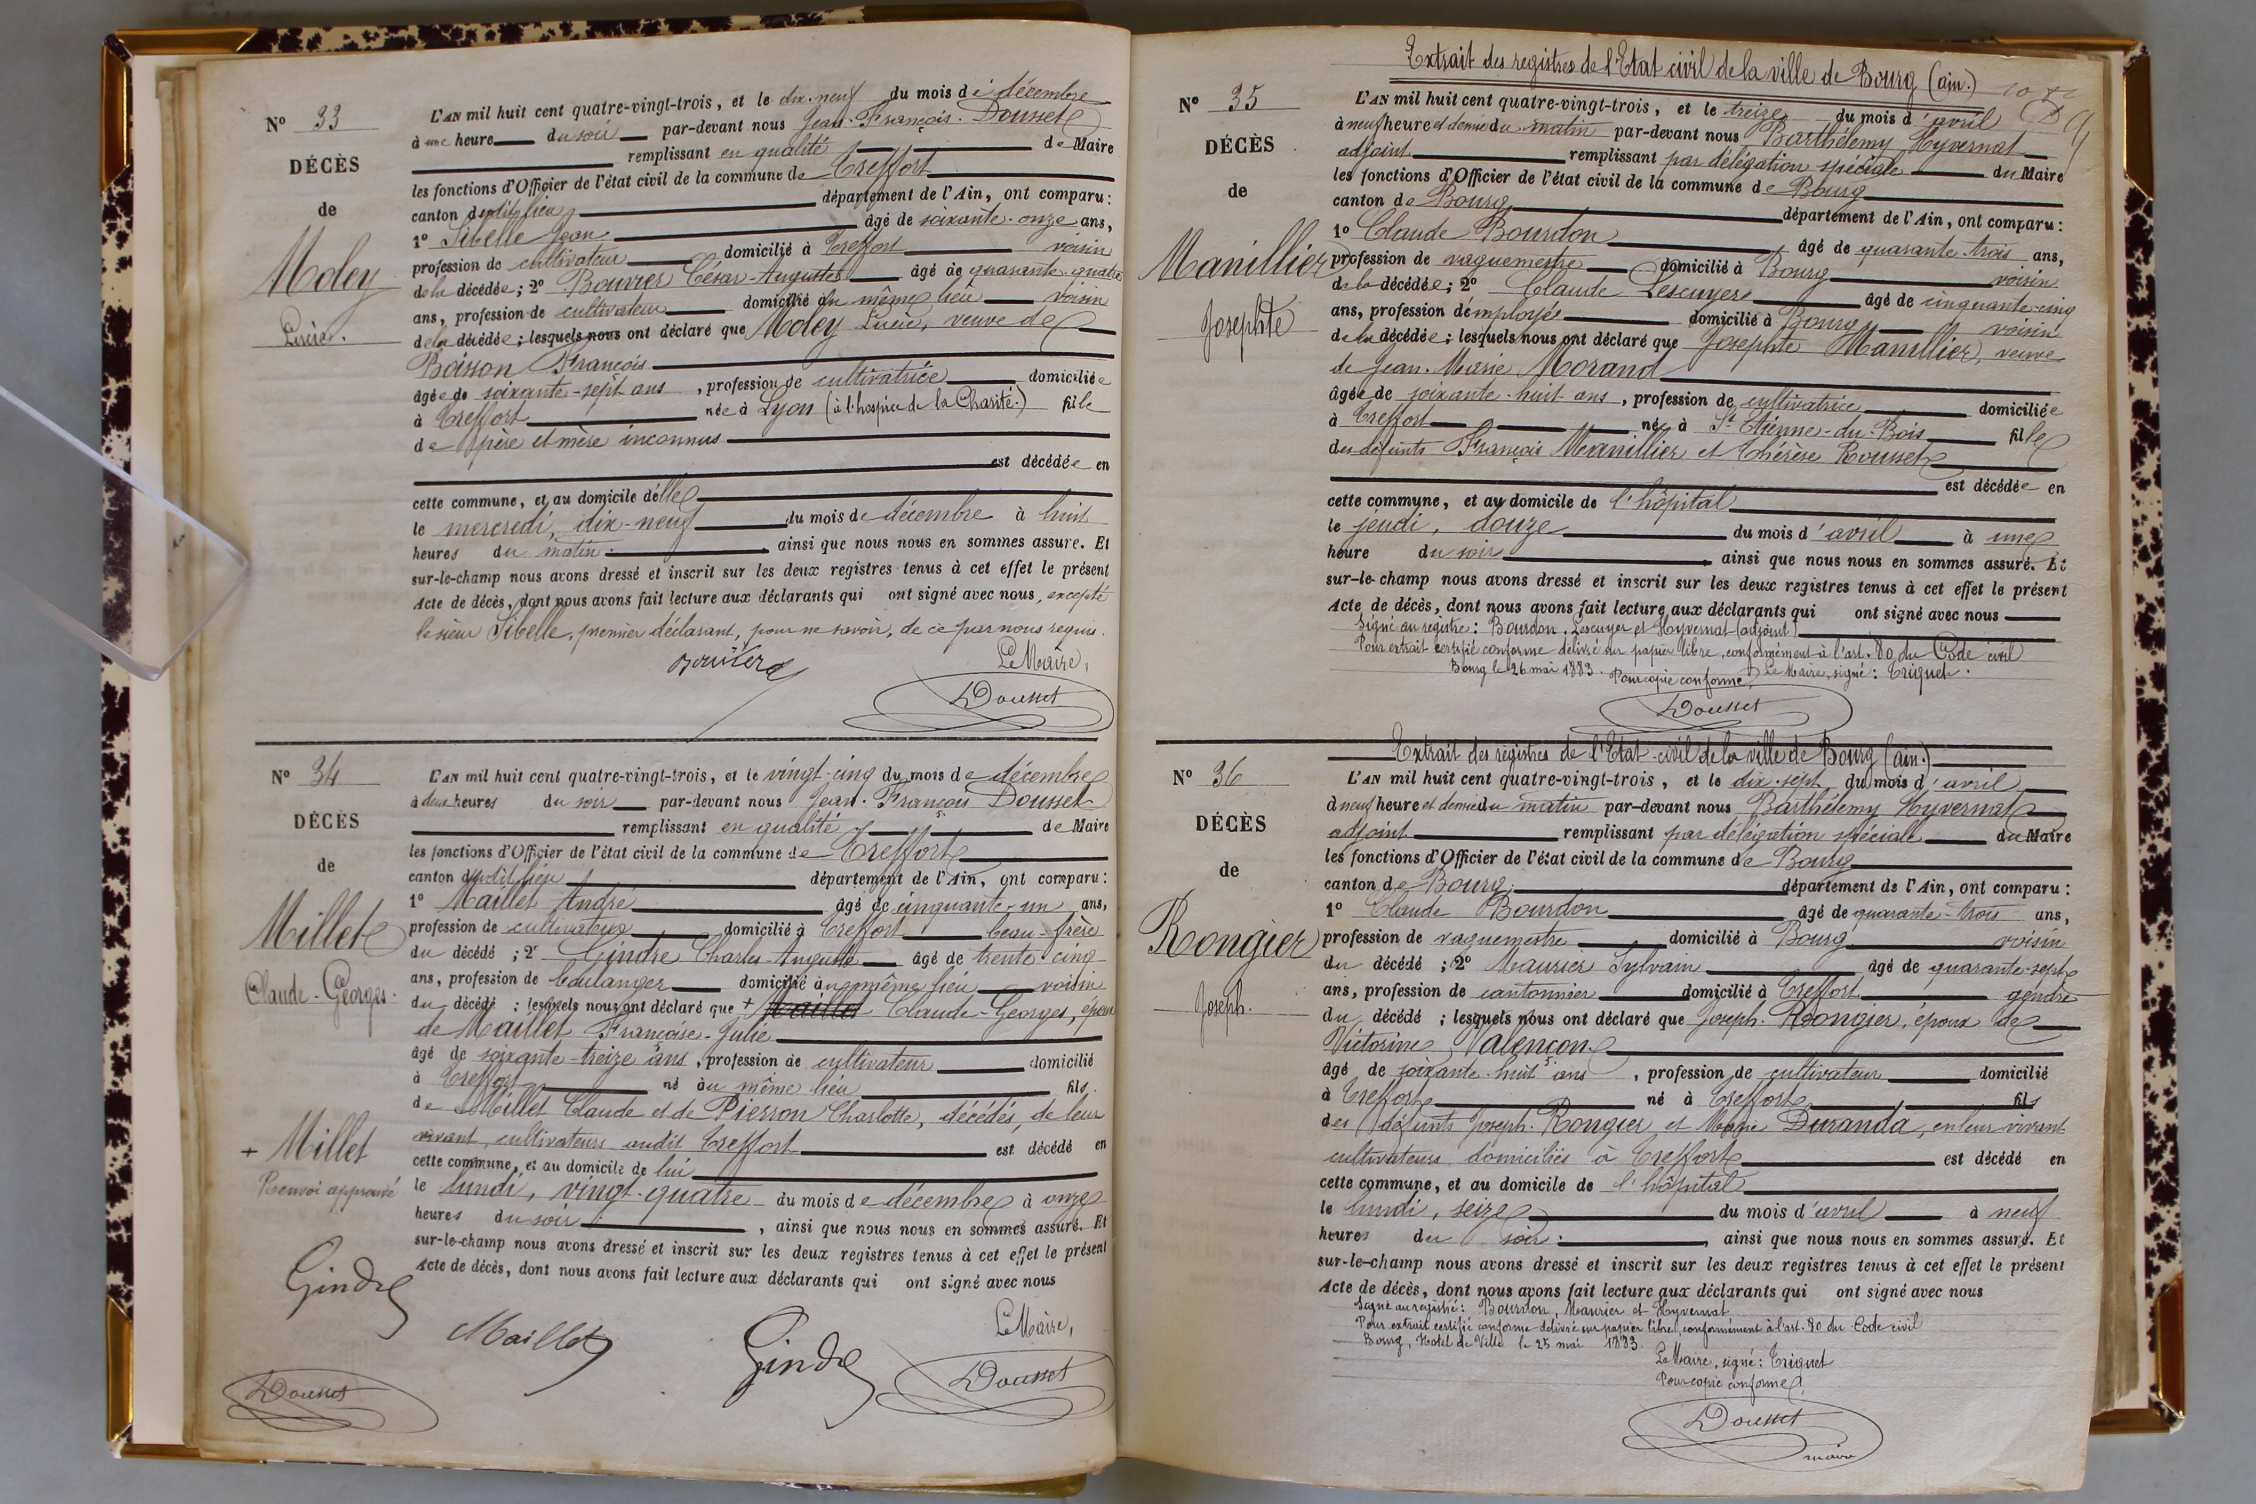 N° 33
DÉCÈS
de
Moley
Lucie.
L'AN mil huit cent quatre-vingt-trois, et le dix-neuf du mois de décembre
à une heure du soir par-devant nous Jean-François Dousset
remplissant en qualité de Maire
les fonctions d'Officier de l'état civil de la commune de Treffort
canton dudit lieu département de l'Ain, ont comparu:
1° Sibelle Jean âgé de soixante-onze ans,
profession de cultivateur domicilié à Treffort voisin
de la décédée; 2° Bouvier César-Auguste âgé de quarante-quatre
ans, profession de cultivateur domicilié au même lieu voisin
de la décédée; lesquels nous ont déclaré que Moley Lucie, veuve de
Boisson François
âgée de soixante-sept ans, profession de cultivatrice domiciliée
à Treffort née à Lyon (à l'hospice de la Charité.) fille
de père et mère inconnus
est décédée en
cette commune, et au domicile d'elle
le mercredi, dix-neuf du mois de décembre à huit
heures du matin. ainsi que nous nous en sommes assuré. Et
sur-le-champ nous avons dressé et inscrit sur les deux registres tenus à cet effet le présent
Acte de décès, dont nous avons fait lecture aux déclarants qui ont signé avec nous, excepté
le sieur Sibelle, premier déclarant, pour ne savoir, de ce par nous requis.
Bouvier
Le Maire,
Dousset
N° 34
DÉCÈS
de
Millet
Claude-Georges.
L'AN mil huit cent quatre-vingt-trois, et le vingt-cinq du mois de décembre
à deux heures du soir par-devant nous Jean-François Dousset
remplissant en qualité de Maire
les fonctions d'Officier de l'état civil de la commune de Treffort
canton dudit lieu département de l'Ain, ont comparu:
1° Maillet André âgé de cinquante-un ans,
profession de cultivateur domicilié à Treffort beau-frère
du décédé; 2° Gindre Charles-Auguste âgé de trente-cinq
ans, profession de boulanger domicilié au même lieu voisin
du décédé; lesquels nous ont déclaré que + Maillet Claude-Georges, époux
de Maillet Françoise-Julie
âgé de soixante-treize ans, profession de cultivateur domicilié
à Treffort né au même lieu fils
de Millet Claude et de Pierron Charlotte, décédés, de leur
vivant cultivateurs audit Treffort est décédé en
cette commune, et au domicile de lui
le lundi, vingt-quatre du mois de décembre à onze
heures du soir. , ainsi que nous nous en sommes assuré. Et
sur-le-champ nous avons dressé et inscrit sur les deux registres tenus à cet effet le présent
Acte de décès, dont nous avons fait lecture aux déclarants qui ont signé avec nous
+ Millet
Renvoi approuvé
Gindre
Maillet
Gindre
Le Maire,
Dousset
Dousset
Extrait des registres de l'Etat civil de la ville de Bourg (ain.)
N° 35
DÉCÈS
de
Manillier
Josephte
L'AN mil huit cent quatre-vingt-trois, et le treize du mois d'avril
à neuf heure et demie du matin par-devant nous Barthélemy Hyvernat
adjoint remplissant par délégation spéciale du Maire
les fonctions d'Officier de l'état civil de la commune de Bourg
canton de Bourg département de l'Ain, ont comparu:
1° Claude Bourdon âgé de quarante-trois ans,
profession de vaguemestre domicilié à Bourg voisin
de la décédée; 2° Claude Lescuyer âgé de cinquante-cinq
ans, profession d'employé domicilié à Bourg voisin
de la décédée; lesquels nous ont déclaré que Josephte Manillier, veuve
de Jean-Marie Morand
âgée de soixante-huit ans, profession de cultivatrice domiciliée
à Treffort né à St Etienne-du-Bois fille
des défunts François Manillier et Thérèse Rousset
est décédée en
cette commune, et au domicile de l'hôpital
le jeudi, douze du mois d'avril à une
heure du soir ainsi que nous nous en sommes assuré. Et
sur-le-champ nous avons dressé et inscrit sur les deux registres tenus à cet effet le présent
Acte de décès, dont nous avons fait lecture aux déclarants qui ont signé avec nous
Signé au registre: Bourdon, Lescuyer et Hyvernat (adjoint)
Pour extrait certifié conforme délivré sur papier libre, conformément à l'art. 80 du Code civil
Bourg le 26 mai 1883. Le Maire, signé: Triquet.
Pour copie conforme,
Dousset
Extrait des registres de l'Etat-civil de la ville de Bourg (ain.)
N° 36
DÉCÈS
de
Rongier
Joseph.
L'AN mil huit cent quatre-vingt-trois, et le dix-sept du mois d'avril
à neuf heure et demie du matin par-devant nous Barthélemy Hyvernat
adjoint remplissant par délégation spéciale du Maire
les fonctions d'Officier de l'état civil de la commune de Bourg
canton de Bourg département de l'Ain, ont comparu:
1° Claude Bourdon âgé de quarante-trois ans,
profession de vaguemestre domicilié à Bourg voisin
du décédé; 2° Maurier Sylvain âgé de quarante-sept
ans, profession de cantonnier domicilié à Treffort gendre
du décédé; lesquels nous ont déclaré que Joseph Rongier, époux de
Victorine Valençon
âgé de soixante-huit ans, profession de cultivateur domicilié
à Treffort né à Treffort fils
des défunts Joseph Rongier et Marie Duranda, en leur vivant
cultivateurs domiciliés à Treffort est décédé en
cette commune, et au domicile de l'hôpital
le lundi, seize du mois d'avril à neuf
heures du soir. , ainsi que nous nous en sommes assuré. Et
sur-le-champ nous avons dressé et inscrit sur les deux registres tenus à cet effet le présent
Acte de décès, dont nous avons fait lecture aux déclarants qui ont signé avec nous
Signé au registre: Bourdon, Maurier et Hyvernat
Pour extrait certifié conforme délivré sur papier libre, conformément à l'art. 80 du Code civil
Bourg, Hotel de Ville le 25 mai 1883.
Le Maire, signé: Triquet
Pour copie conforme,
Dousset
maire